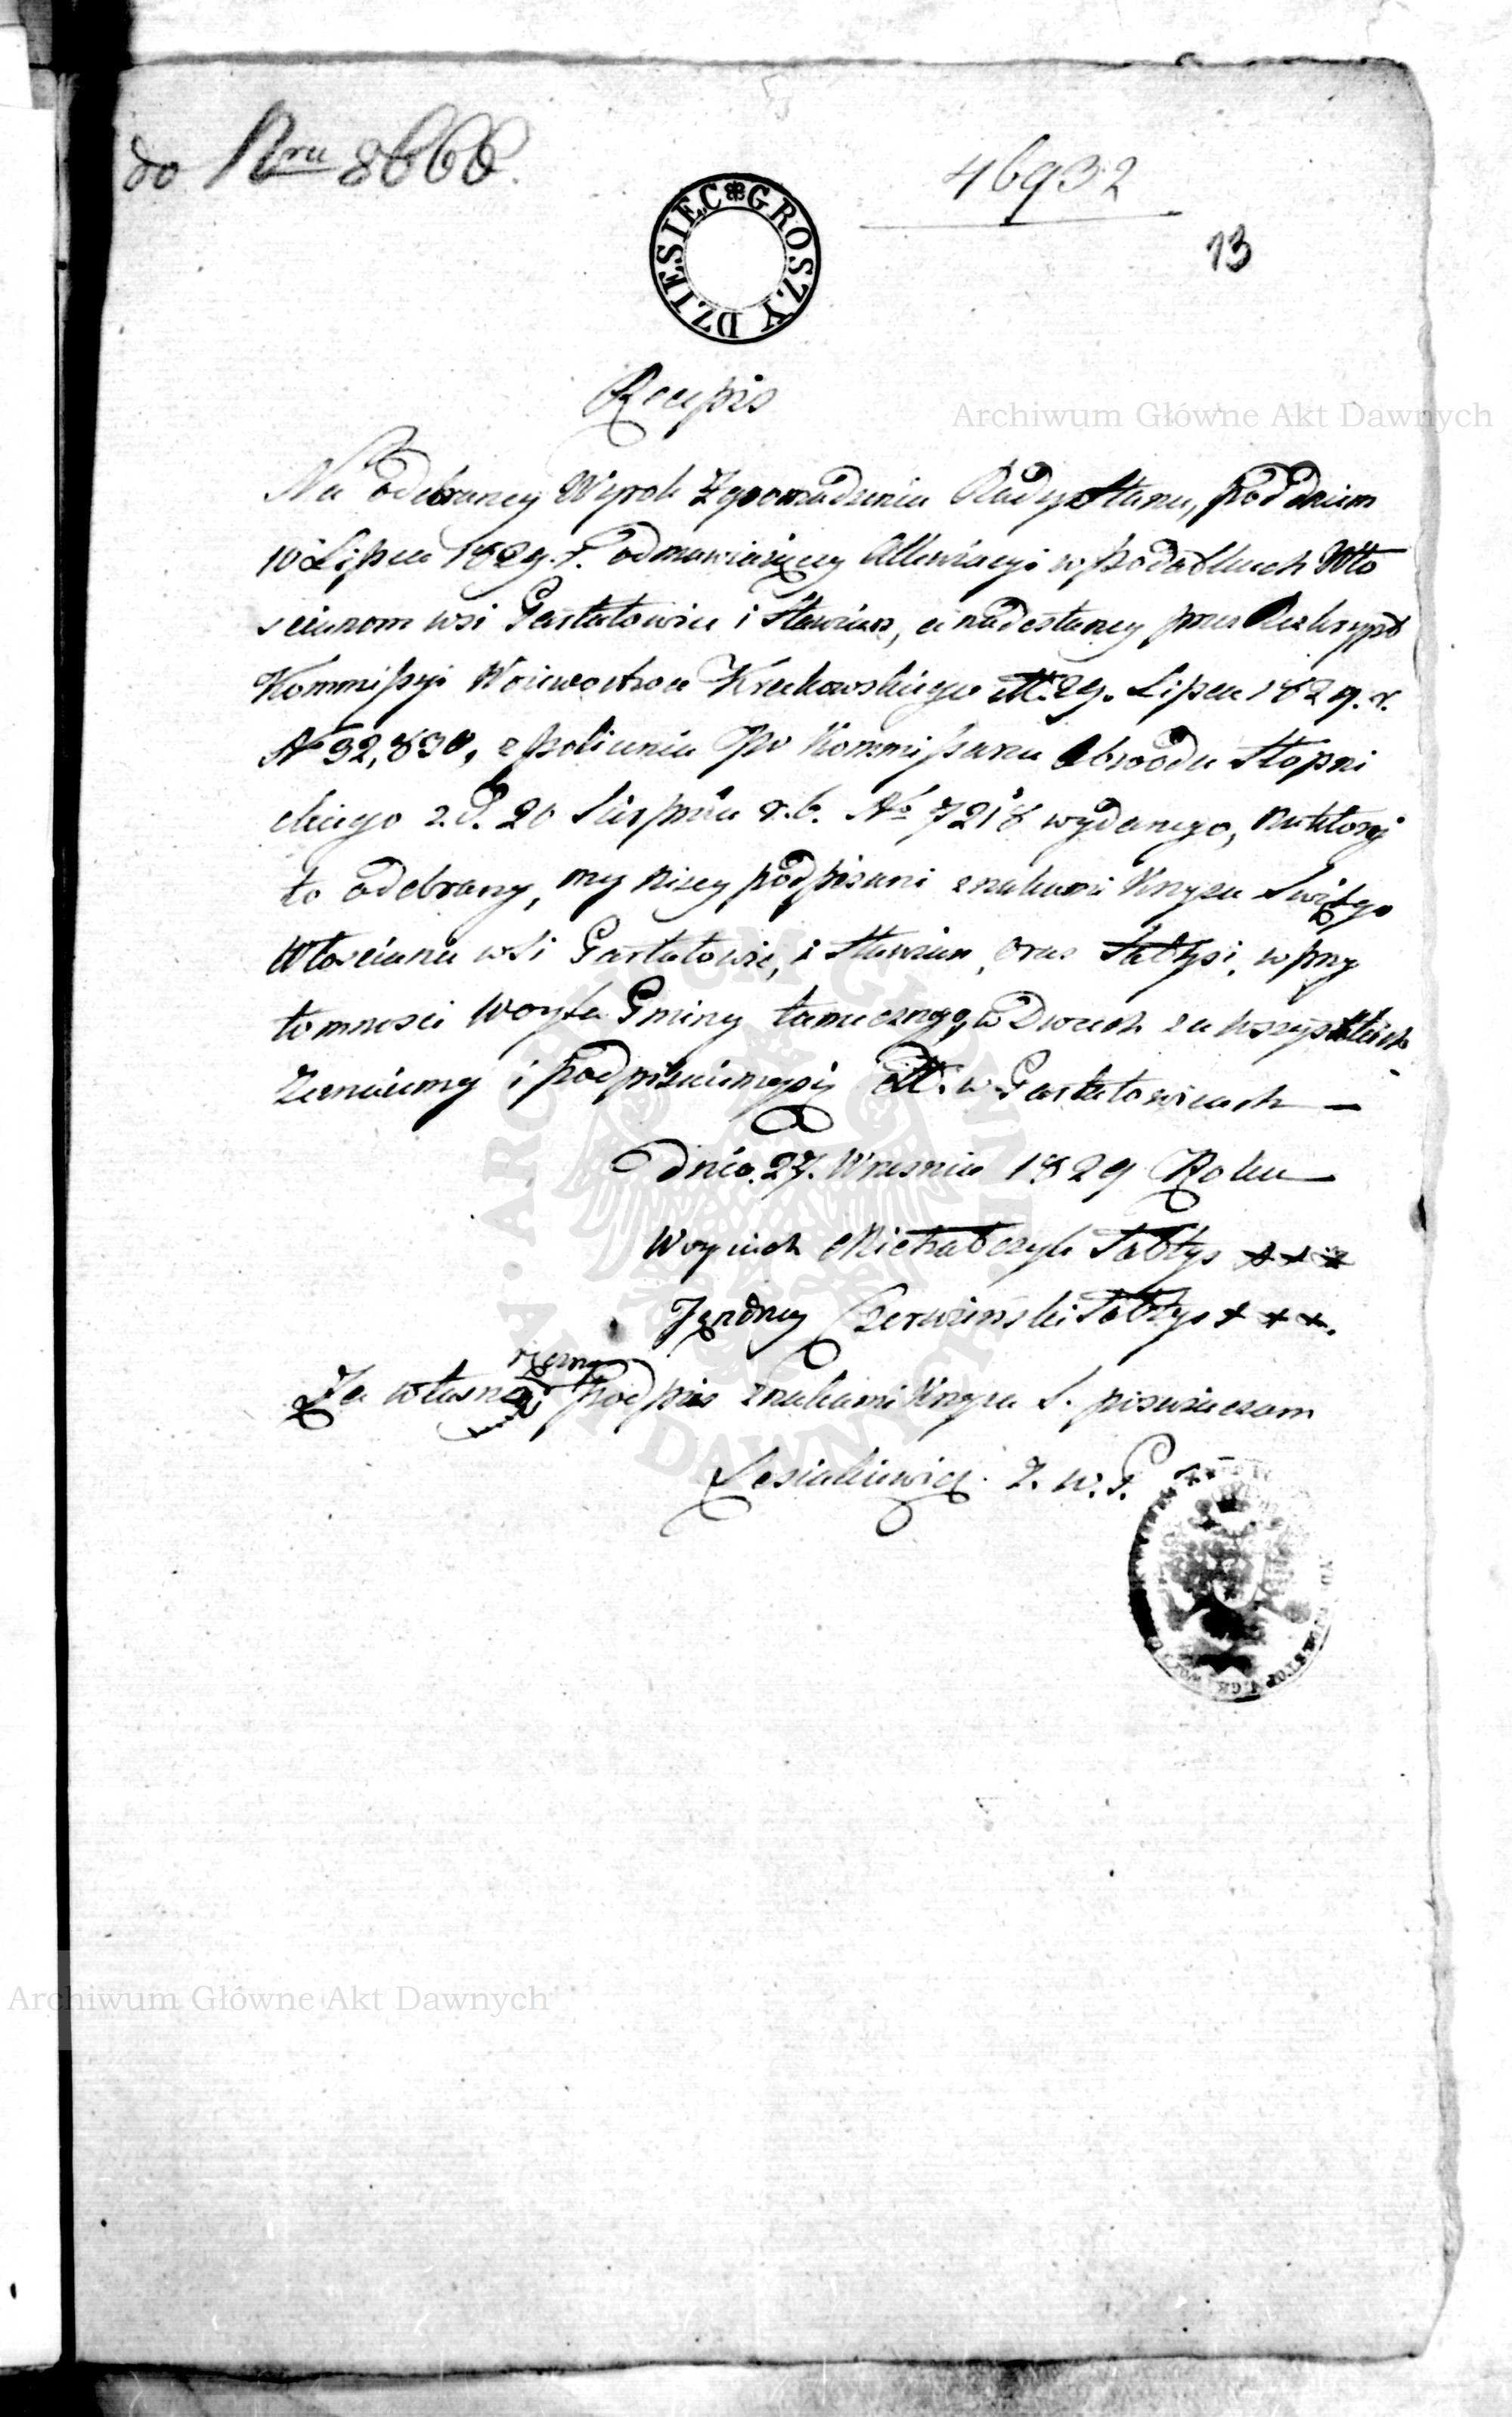 do Nru 8666.
46932
13
DZIESIEC GROSZY
Recepis
Na odebrany Wyrok Zgromadzenia Rady Stanu, pod dniem
10 Lipca 1829. r. odmawiaiący Allewiacyi w podatkach Wło
scianom wsi Gartatowic i Stawian, a nadesłany przez Reskrypt
Kommissyi Woiewodztwa Krakowskiego dtto. 29. Lipca 1829. r.
No 32,830, z polecenia Po Kommissarza Obwodu Stopni
ckiego z. d. 20 Sierpnia r. b. No 7218 wydanego, na który
to odebrany, my niżey podpisani znakami Krzyża Swiętego
Włoscianie wsi Gartatowic, i Stawian, oraz Sołtysi, w przy
tomnosci Woyta Gminy tamecznego, w Dwoch za wszystkich
Zeznaiemy i podpisuiemy się dtt. w Gartatowicach —
dnia. 27. Wrzesnia 1829 Roku —
Woyciech Michalczyk Sołtys + + +
Jędrzey Czerwiński Sołtys + + +.
ręczny
Za własno podpis znakami Krzyża S. poswiaczam
Lesiakiewicz. Z. W. G.
Archiwum Główne Akt Dawnych
Archiwum Główne Akt Dawnych
ARCHIWUM GŁÓWNE AKT DAWNYCH